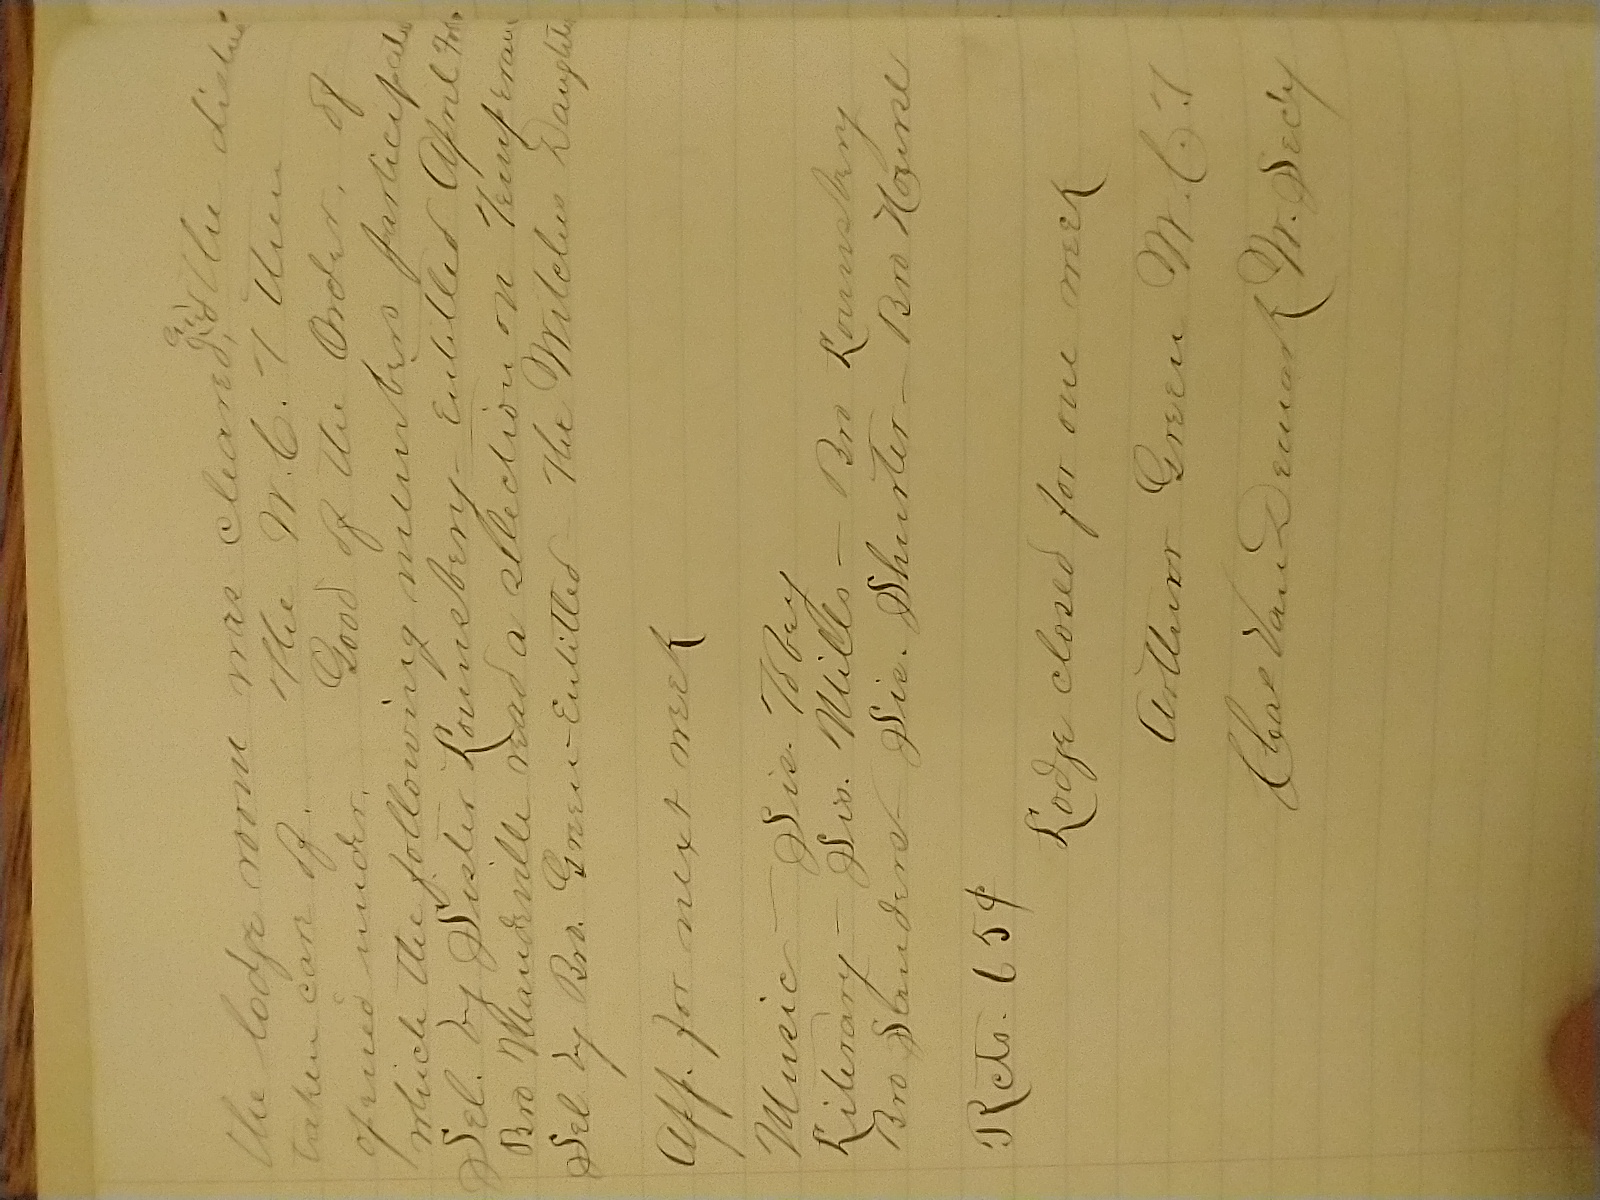 the lodge room was cleared, and the dishes
taken care of. The W.C.T then
opened under. Good of the Order, of
which the following members participated
Sel. by Sister Lounsbery - Entitled April Fools
Bro Mandeville read a selection on Temperance
Sel by Bro. Green - Entitled - The Witches Daughter
App. for next week
Music - Sis. Tobey
Literary - Sis. Mills - Bro Lounsbery
Bro Sanders - Sis. Shurter - Bro
Rcts. 65¢
Lodge closed for one week
Arthurr Green W.C.T
Chas Van Demark W. Secy